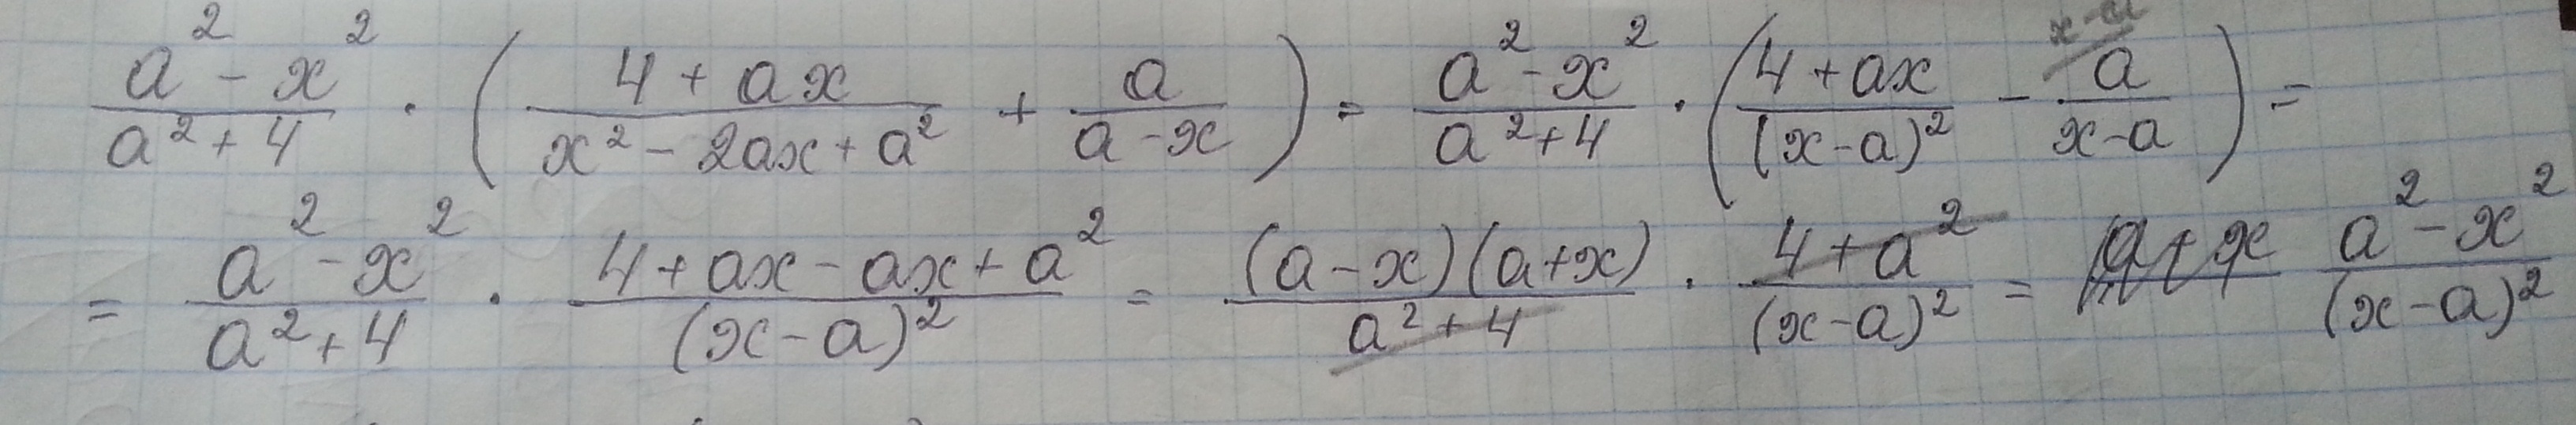 (a² - x²)/(a² + 4) · ((4 + ax)/(x² - 2ax + a²) + a/(a - x)) = (a² - x²)/(a² + 4) · ((4 + ax)/(x - a)² - a/(x - a)) =
= (a² - x²)/(a² + 4) · (4 + ax - ax + a²)/(x - a)² = ((a - x)(a + x))/(a² + 4) · (4 + a²)/(x - a)² = (a² - x²)/(x - a)²